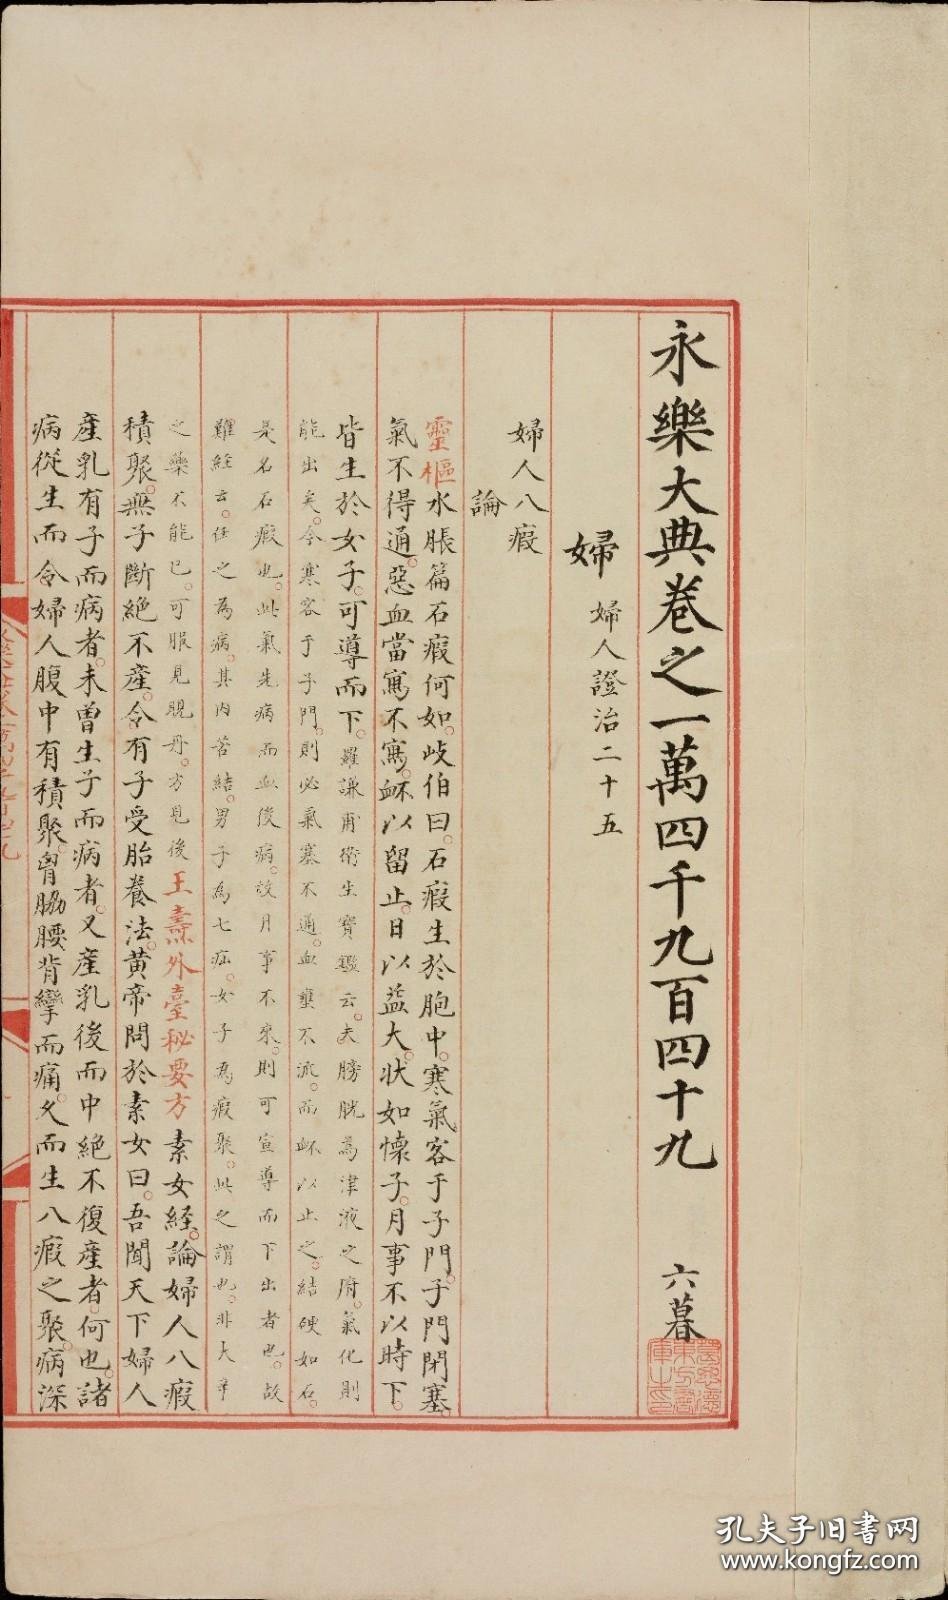 永樂大典卷之一萬四千九百四十九 六暮
婦 婦人證治二十五
婦人八瘕
論
靈樞水脹篇石瘕何如。岐伯曰。石瘕生於胞中。寒氣客于子門。子門閉塞。
氣不得通。惡血當寫不寫。衃以留止。日以益大。狀如懷子。月事不以時下。
皆生於女子。可導而下。羅謙甫衛生寶鑑云。夫膀胱為津液之府。氣化則
能出矣。今寒客于子門。則必氣塞不通。血壅不流。而衃以止之。結硬如石。
是名石瘕也。此氣先病而血後病。故月事不來。則可宣導而下出者也。故
難經云。任之為病。其內苦結。男子為七疝。女子為瘕聚。此之謂也。非大辛
之藥不能已。可服見晛丹。方見後王燾外臺秘要方素女經。論婦人八瘕
積聚。無子斷絕不產。令有子受胎養法。黃帝問於素女曰。吾聞天下婦人
產乳有子而病者。未曾生子而病者。又產乳後而中絕不復產者。何也。諸
病從生而令婦人腹中有積聚。胷脇腰背攣而痛。久而生八瘕之聚。病深
孔夫子旧书网
www.kongfz.com